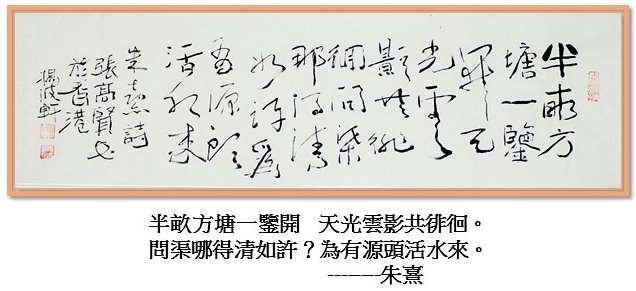 半畝方
塘一鑒
開天
光雲
影共徘
徊問渠
那得清
如許為
有源頭
活水來
朱熹詩
張高賢書
於香港
揚波軒
半畝方塘一鑒開　天光雲影共徘徊。
問渠哪得清如許？為有源頭活水來。
-------朱熹